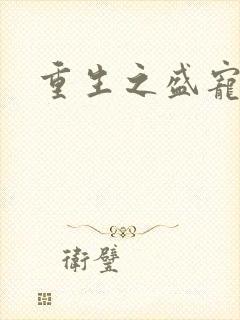 重生之盛寵
衛璧